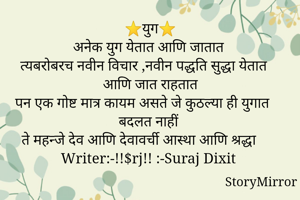 ⭐युग⭐
अनेक युग येतात आणि जातात
त्यबरोबरच नवीन विचार ,नवीन पद्धति सुद्धा येतात
आणि जात राहतात
पन एक गोष्ट मात्र कायम असते जे कुठल्या ही युगात
बदलत नाहीं
ते महन्जे देव आणि देवावर्ची आस्था आणि श्रद्धा
Writer:-!!$rj!! :-Suraj Dixit
StoryMirror